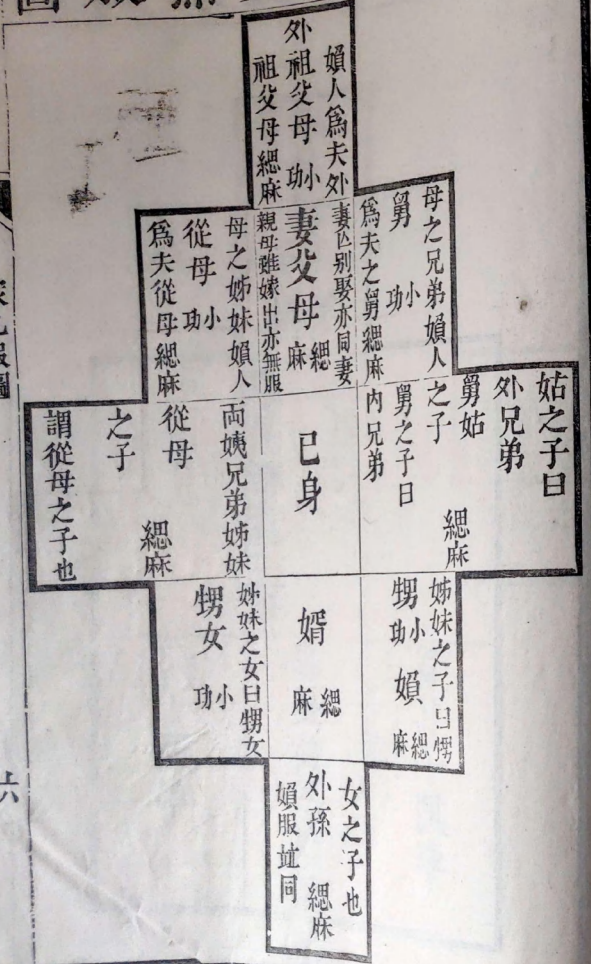 圖
媍人爲夫外
外祖父母 小功
祖父母緦麻
母之兄弟媍人
舅 小功
爲夫之舅緦麻
妻亡别娶亦同妻
妻父母 緦麻
親母雖嫁出亦無服
母之姊妹媍人
從母 小功
爲夫從母緦麻
姑之子曰
外兄弟
舅姑
之子 緦麻
舅之子曰
内兄弟
己身
両姨兄弟姊妹
從母
之子 緦麻
謂從母之子也
姊妹之子曰甥
甥 小功 媍 緦麻
婿 緦麻
姊妹之女曰甥女
甥女 小功
女之子也
外孫 緦麻
媍服竝同
六